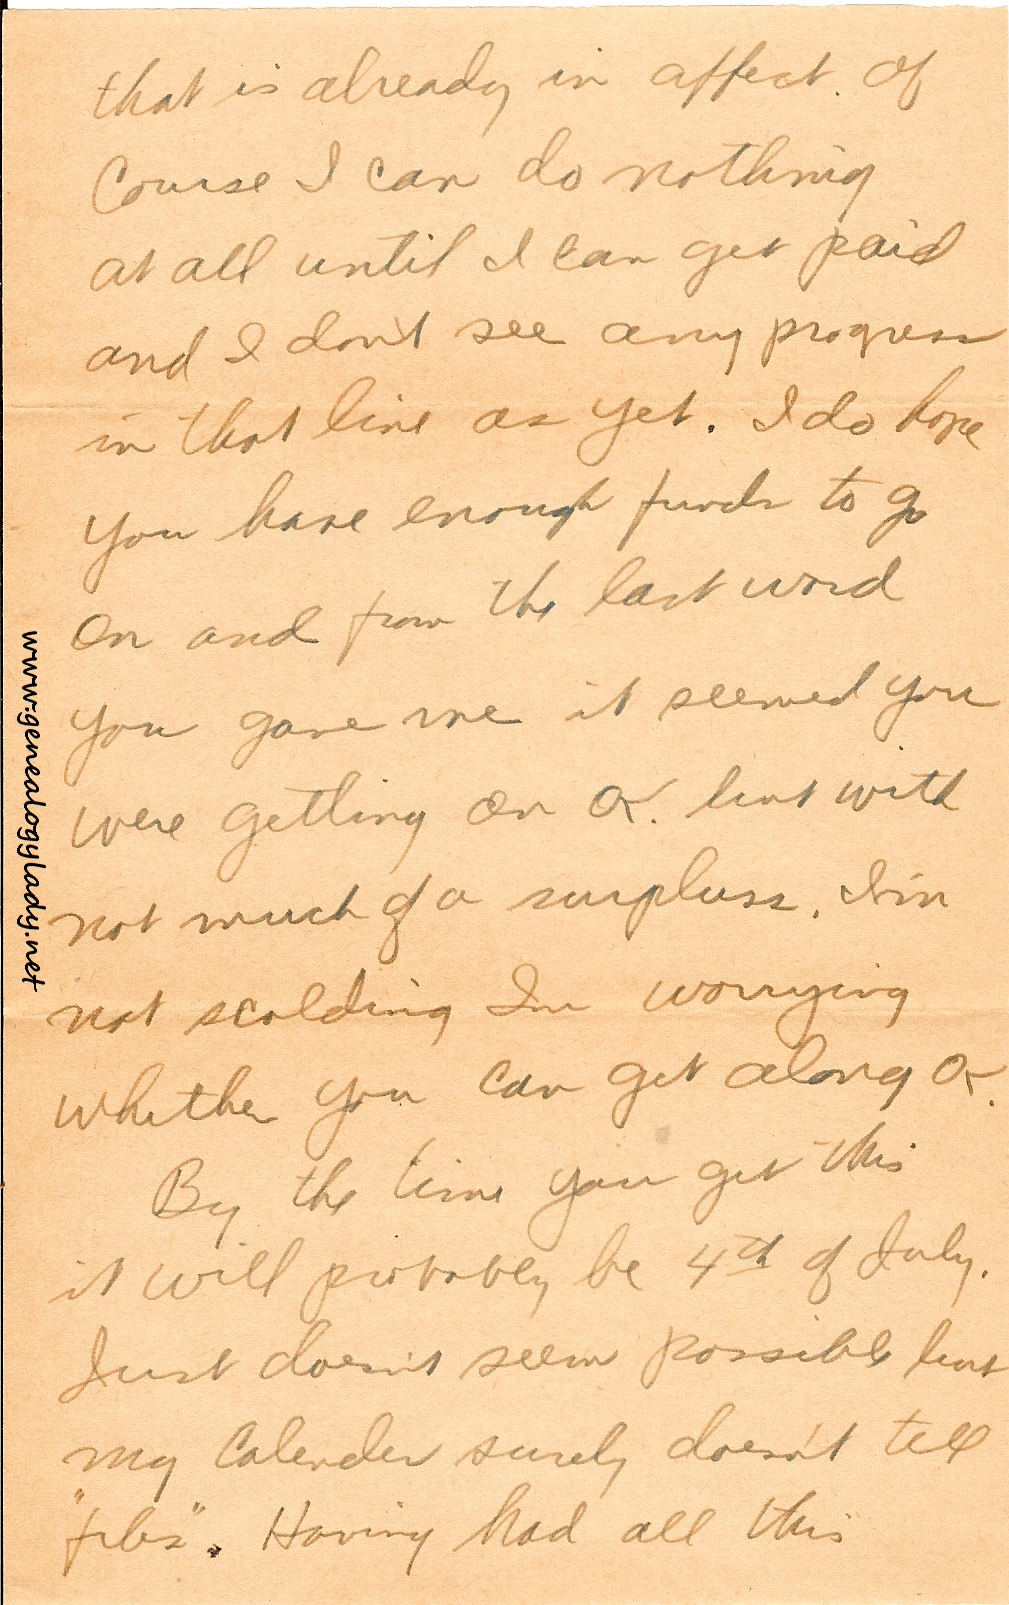 that is already in affect. Of
Course I can do nothing
at all until I can get paid
and I don't see any progress
in that line as yet. I do hope
you have enough funds to go
on and from the last word
you gave me it seemed you
were getting on OK. but with
not much of a surpluss. I'm
not scolding Im worrying
whether you can get along OK.
By the time you get this
it will probably be 4th of July.
Just doesn't seem possible but
my Calender surely doesn't tell
"fibs". Having had all this
www.genealogylady.net